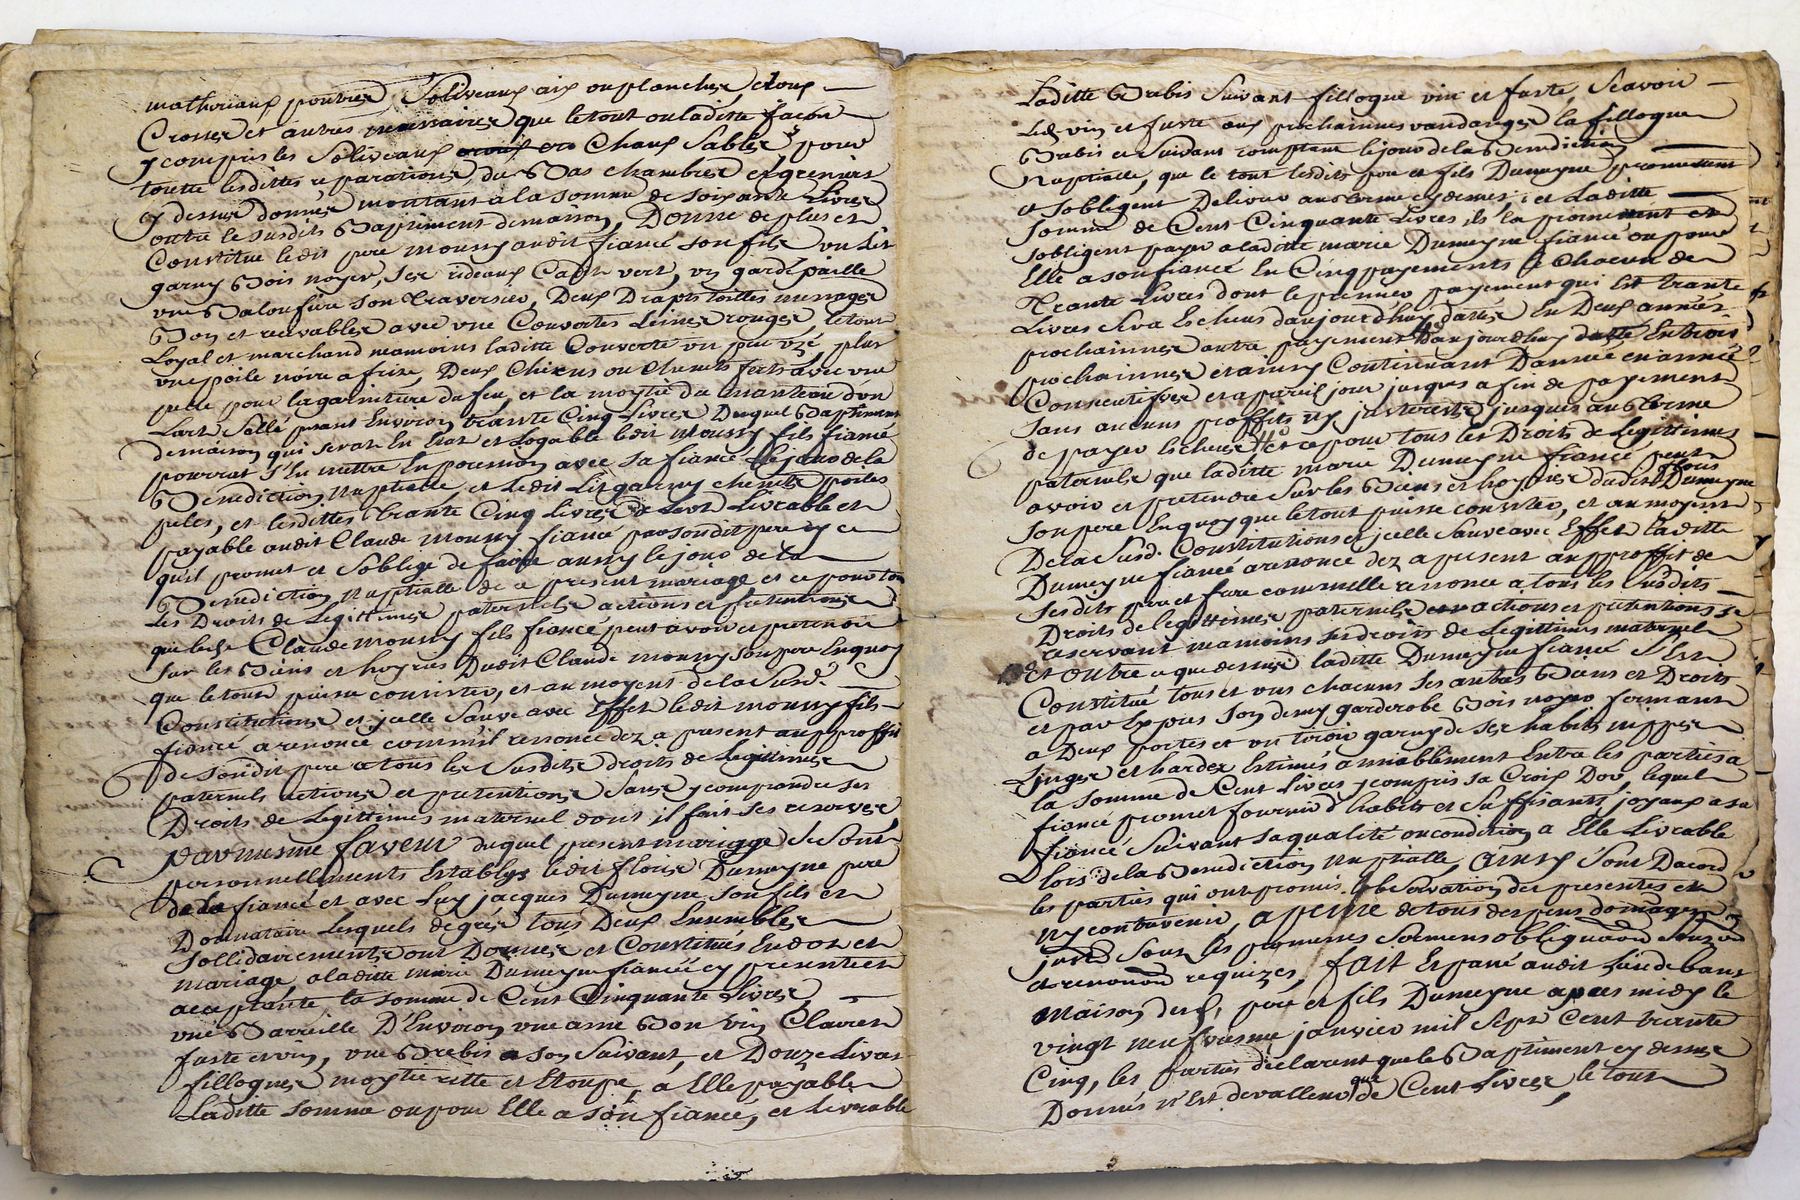 matheriaux poutres, Soliveaux aix ou planches, cloux
Crosses et autres necessaires que le tout ou laditte facon
y compris les Soliveaux Chaux Sables pour
toutte lesdittes reparations, du Bas chambres et greniers
cy dessus donnés montant a la somme de soixante Livres
outre le susdits Baptiment de maison, Donne de plus et
Constitue ledit pere mousny audit fiancé son fils un Lit
garny Bois noyer, ses rideaux Cadis vert, un garde paille
une Baloufiere son traversier, Deux Draps toilles menages
Bon et recevables avec une Couvertes Leines rouges, le tout
Loyal et marchand neamoins laditte Couverte un peu uzé, plus
une poile noire a frire, Deux Chenes ou Chenets ferts avec une
pelle pour la garniture du feu, et la moytié du manteau d'un
Lart Sallé pesant Environ trante Cinq Livres Duquel Baptiment
de maison qui serat En Etat et Logeable ledit Mousny fils fiancé
pourrat s'En mettre En possession avec sa fiancé Lejour de la
Benediction Nuptialle et ledit Lit garny chenets poiles
peles, et lesdittes trante Cinq livres de Lart Livrable et
payable audit Claude mousny fiancé par sondit pere cy ce
quil promet et s'oblige de faire aussy le jour de la
Benediction Nuptialle de a present mariage et ce pour tous
Les Droits de Legittimes paternels actions et pretentions
que ledit Claude Mousny fils fiancé peut avoir et pretendre
sur les Biens et hoyries Dudit Claude mousny son pere Enquoy
que le tout puisse consister, et au moyent de la Susd.
Constitutions et jcelle Sauve avec Effet ledit mousny fils
fiancé a renoncé comm'il renonce dez a present aupproffit
de sondit pere a tous les susdits droits de Legittimes
paternels actions et pretentions sans y comprendre ses
Droits de Legittimes maternel dont il fait ses reserves
Par mesme faveur duquel present mariagge se sont
personnellements Establys ledit floris Dumeyne pere
de la fiancé et avec Luy jacques Dumeyne son fils et
Donnataire Lesquels de grés tous Deux Ensembles
sollidairements ont Donnés et Constitués En dot et
mariage, a laditte marie Dumeyne fiancée cy presente et
acceptante la somme de Cent Cinquante Livres
une Barreille D'Environ une asné Bon vin Claires
fuste et vin, une Brebis a son Suivant, et Douze Livres
filloques moytie ritte et Etoupe, a Elle payable
Laditte somme ou pour Elle a son fiancé, et Livrable
Laditte Brebis Suivant filloque vin et fuste Scavoir
Led. vin et fuste aux prochainnes vandanges la filloque
Brebis et Suivant comptant le jour de la Benediction
Nuptialle, que le tout lesdits pere et fils Dumeyne promettent
et sobligent Delivrer aux terme cy dessus ; et Laditte
somme de Cent Cinquante Livres ils la promettent et
sobligent payer a laditte marie Dumeyne fiancé ou pour
Elle a son fiancé En Cinq payements Chacun de
Trante Livres dont le premier payement qui Est trante
Livres Sera Escheus daujourdhuy datte En Deux années
prochainnes autre payement daujourdhuy datte En trois
prochainnes et ainsy Continuant Dannée en année
Consecutifves et a pareil jour jusques a fin de payement
sans aucuns proffits ny jnterets jusques aux terme
de payer Escheus, Et ce pour tous les Droits de Legittimes
paternels que laditte marie Dumeyne fiancé peut
avoir et pretendre sur les Biens et hoyries dudit floris Dumeyne
son pere Enquoy que le tout puisse consister, et au moyent
De la Susd. Constitutions et jcelle Sauve avec Effet laditte
Dumeyne fiancé a renoncé dez a present aupproffit de
sesdits pere et frere comm'elle renonce a tous les susdits
Droits de legittimes paternels actions et pretentions se
reservant neamoins ses droits de Legittimes maternel
Et outre ce que dessus laditte Dumeyne fiancé s'Est
Constitué tous et uns chacuns ses autres Biens et Droits
et par Expres son demy garderobe Bois noyer fermant
a Deux portes et un tiroir garny de ses habits nippes
Linges et hardes Estimés amiablement Entre les parties a
la somme de Cent Livres y compris sa Croix Dor, lequel
fiancé promet fournir d'habits et Suffisants joyaux a sa
fiancé suivant sa qualité ou condition a Elle Livrable
lors de la Benediction Nuptialle, Ainsy sont Dacord
les parties qui ont promis lobservation des presentes et
ny contrevenir, a peine de tous despens domages
sous les promesses sermens obligation
et renonon requizes, fait Et passé audit Lieu de
Maison desd. pere et fils Dumeyne apres midy le
vingt neufviesme janvier mil Sept Cent trante
Cinq, les parties declarent que le Baptiment cy dessus
Donnés n'Est de valleur que de Cent Livres, le tout